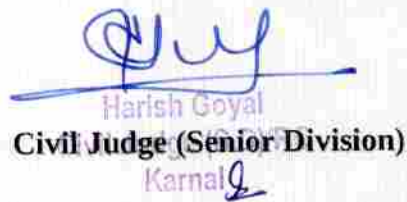 Harish Goyal
Civil Judge (Senior Division)
Karnal